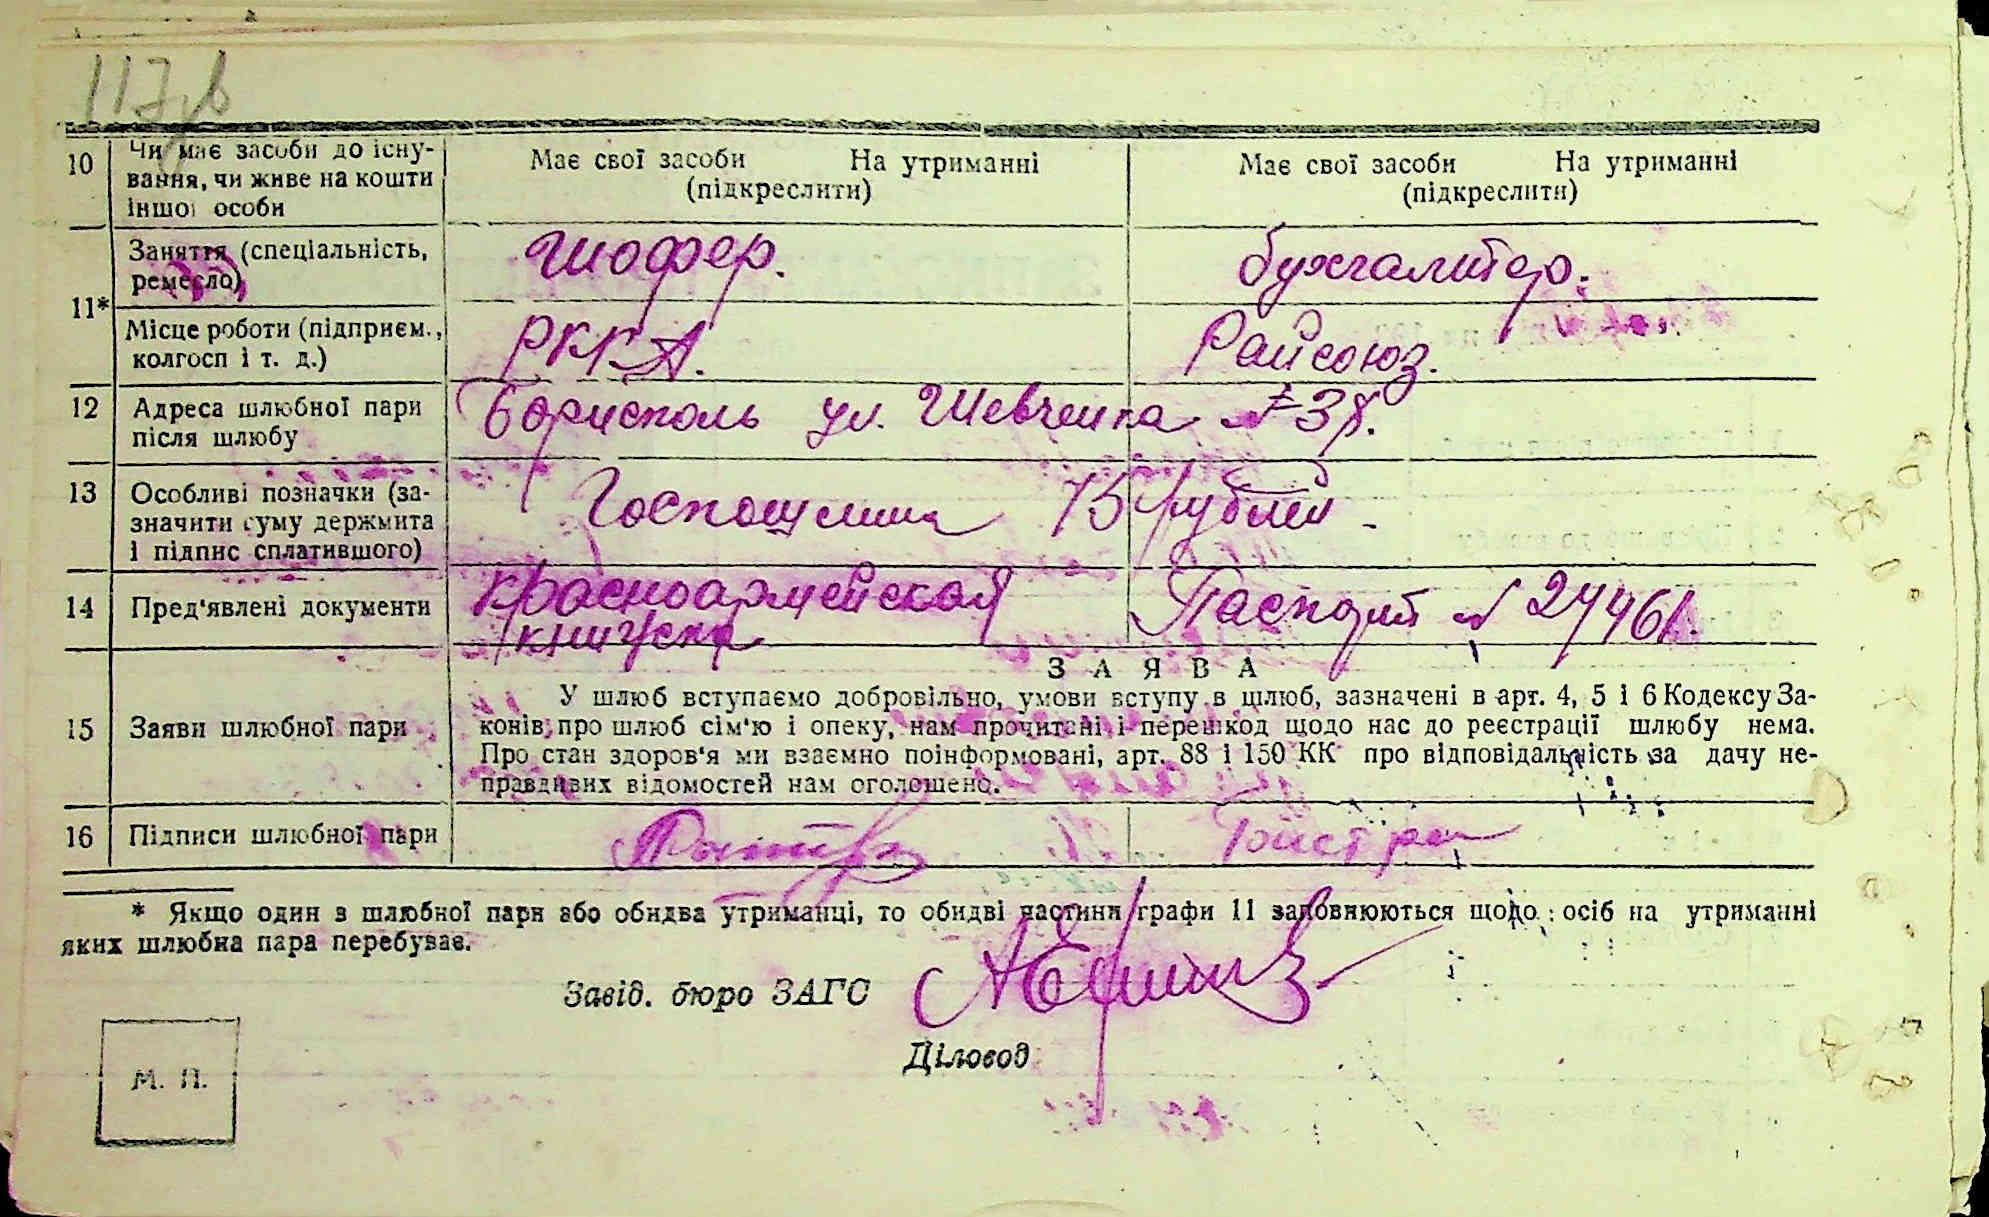 117 в
10 Чи має засоби до існу-
вання, чи живе на кошти
іншої особи
Має свої засоби На утриманні
(підкреслити)
Має свої засоби На утриманні
(підкреслити)
11*
Заняття (спеціальність,
ремесло)
Шофер.
бухгалтер.
Місце роботи (підприєм.,
колгосп і т. д.)
РККА.
Райсоюз.
12 Адреса шлюбної пари
після шлюбу
Борисполь ул. Шевченка № 38.
13 Особливі позначки (за-
значити суму держмита
і підпис сплатившого)
Госпошлина 15 рублей
14 Пред'явлені документи
Красноармейская
книжка
Паспорт № 27461.
ЗАЯВА
15 Заяви шлюбної пари
У шлюб вступаємо добровільно, умови вступу в шлюб, зазначені в арт. 4, 5 і 6 Кодексу За-
конів про шлюб сім'ю і опеку, нам прочитані і перешкод щодо нас до реєстрації шлюбу нема.
Про стан здоров'я ми взаємно поінформовані, арт. 88 і 150 КК про відповідальність за дачу не-
правдивих відомостей нам оголошено.
16 Підписи шлюбної пари
* Якщо один з шлюбної пари або обидва утриманці, то обидві частини графи 11 заповнюються щодо осіб на утриманні
яких шлюбна пара перебуває.
Завід. бюро ЗАГС
Діловод
М. П.